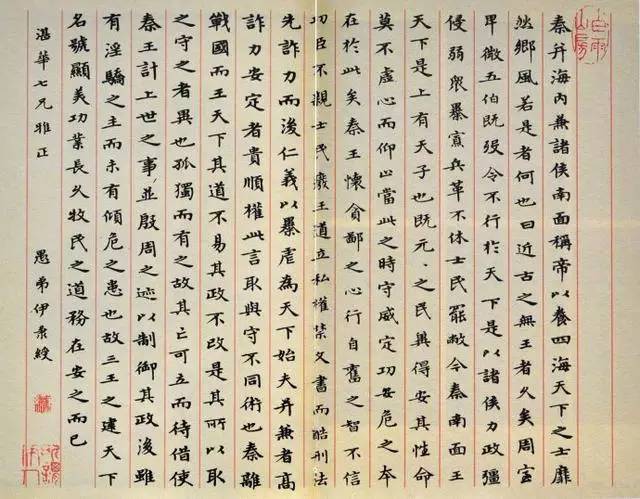 秦并海内兼諸侯南面稱帝以養四海天下之士靡
然鄉風若是者何也曰近古之無王者久矣周室
卑微五伯既殁令不行於天下是以諸侯力政彊
侵弱眾暴寡兵革不休士民罷敝今秦南面王
天下是上有天子也既元、之民冀得安其性命
莫不虛心而仰上當此之時守威定功安危之本
在於此矣秦王懷貪鄙之心行自奮之智不信
功臣不親士民廢王道立私權禁文書而酷刑法
先詐力而後仁義以暴虐為天下始夫并兼者高
詐力安定者貴順權此言取與守不同術也秦離
戰國而王天下其道不易其政不改是其所以取
之守之者異也孤獨而有之故其亡可立而待借使
秦王計上世之事並殷周之迹以制御其政後雖
有淫驕之主而未有傾危之患也故三王之建天下
名號顯美功業長久牧民之道務在安之而已
湛華七兄雅正 愚弟伊秉綬